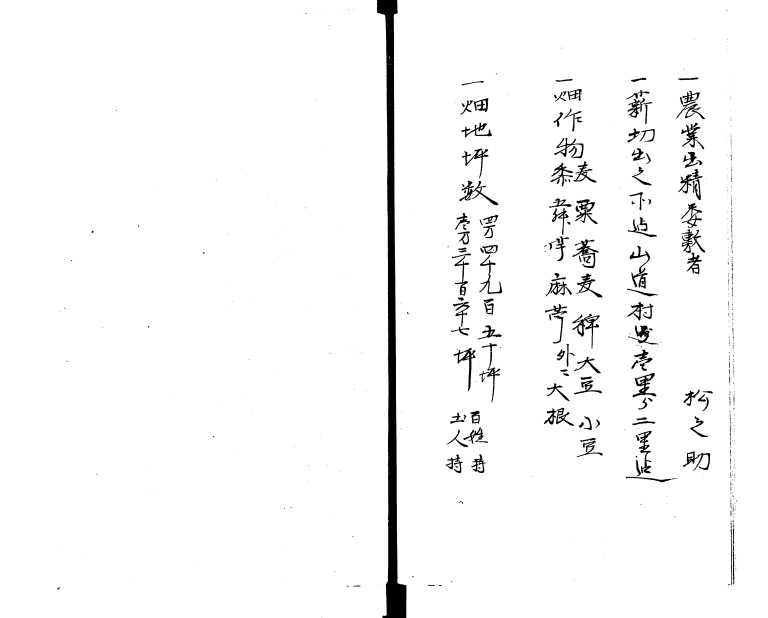 一農業出精委敷者
松之助
一薪切出之不迠山道村ゟ壱里ゟ二里迠
一畑作物麦粟蕎麦稗大豆小豆
黍 麻 外ニ大根
一畑地坪数
四万四千九百五十坪 百姓持
壱万三千百六十七坪 土人持